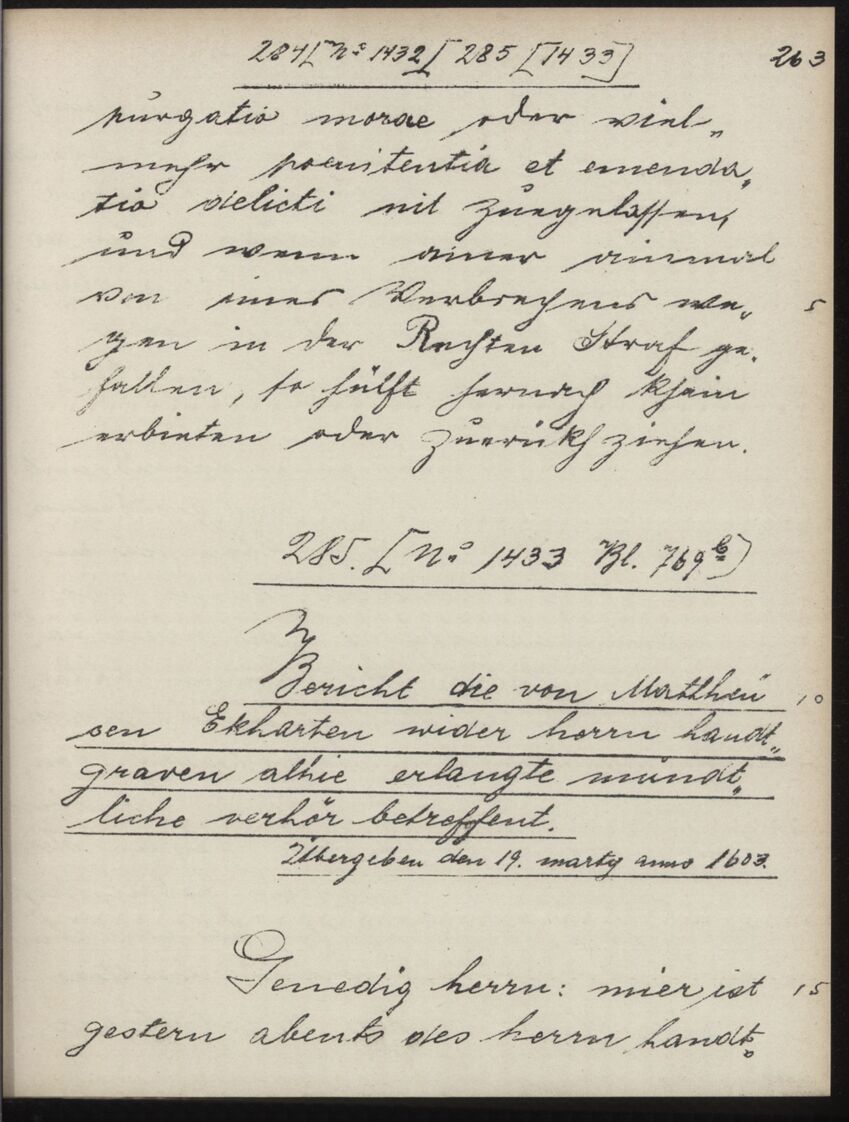 284 [No 1432] 285 [1433] 263
purgatio morae oder viel„
mehr poenitentia et emenda„
tio delicti nit zuegelassen,
und wenn einer einmal
von eines Verbrechens we„ 5
gen in der Rechten Straf ge„
fallen, so hülfft hernach khain
erbieten oder zuerükh ziehen.
285. [No 1433 Bl. 769b]
Bericht die von Mattheü 10
sen Ekharten wider herrn handt„
graven alhie erlangte mündt„
liche verhör betreffent.
Übergeben den 19. marty anno 1603.
Genedig herrn: mier ist 15
gestern abents des herrn handt„